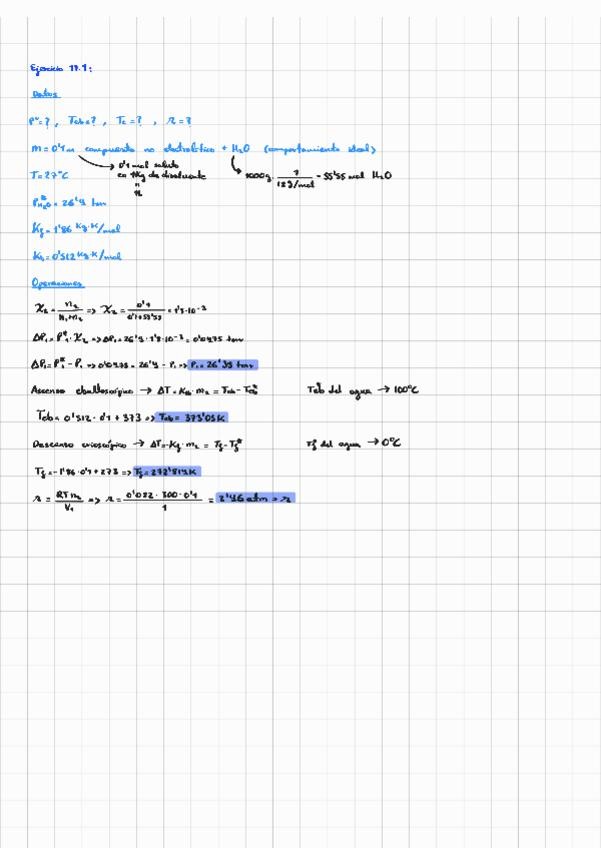 Ejercicio 11.1:
Datos
Pᵛ=?, Teb=?, Tc=?, π=?
m = 0'1 m compuesto no electrolítico + H₂O (comportamiento ideal)
0'1 mol soluto
en 1Kg de disolvente
1000g · 1/18g/mol = 55'55 mol H₂O
T = 27°C
P*H₂O = 26'4 torr
Kf = 1'86 Kg·K/mol
Kb = 0'512 Kg·K/mol
Operaciones
X₂ = n₂/n₁+n₂ => X₂ = 0'1/0'1+55'55 = 1'8·10⁻³
ΔP₁ = P₁* · X₂ => ΔP₁ = 26'4 · 1'8·10⁻³ = 0'0475 torr
ΔP₁ = P₁* - P₁ => 0'0475 = 26'4 - P₁ => P₁ = 26'35 torr
Ascenso ebulloscópico → ΔT = Kb · m₂ = Teb - Teb* Teb* del agua → 100°C
Teb = 0'512 · 0'1 + 373 => Teb = 373'05K
Descenso crioscópico → ΔT = -Kf · m₂ = Tf - Tf* Tf* del agua → 0°C
Tf = -1'86 · 0'1 + 273 => Tf = 272'814K
π = RTn₂/V₁ => π = 0'082 · 300 · 0'1/1 = 2'46 atm = π